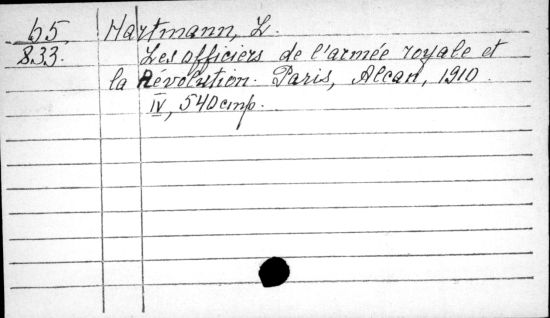 65 Hartmann, L.
833. Les officiers de l'armée royale et
la Révolution. Paris, Alcan, 1910.
IV, 540 стр.